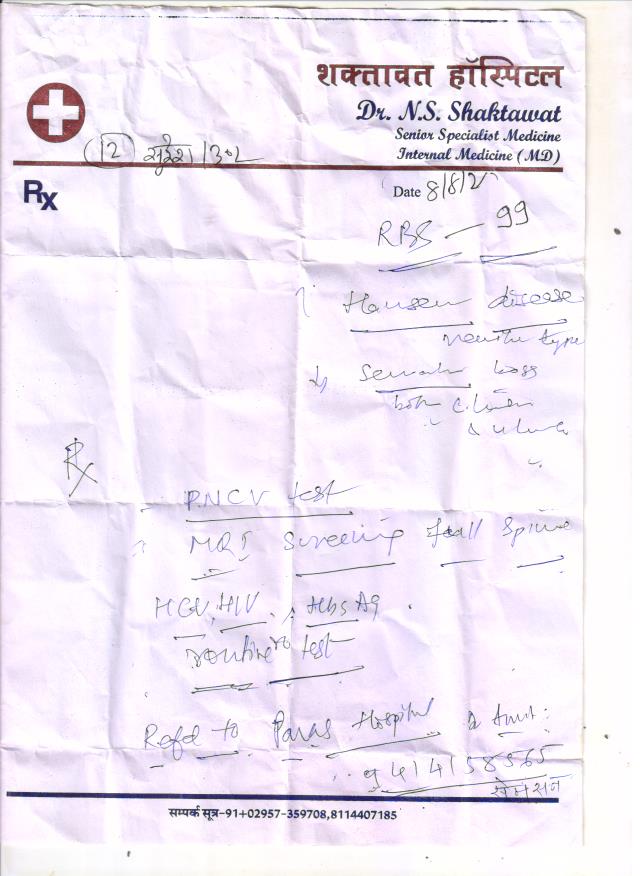 शक्तावत हॉस्पिटल
Dr. N.S. Shaktawat
Senior Specialist Medicine
Internal Medicine (MD)
12 सुरेश
Rx
Date 8/8/2
RBS — 99
Hansen disease
type
loss
both
&
Rx
NCV test
MRI Screening of all Spine
HCV, HIV, HbsAg
routine test
Refd to Paras Hospital
9414158565
सम्पर्क सूत्र-91+02957-359708,8114407185